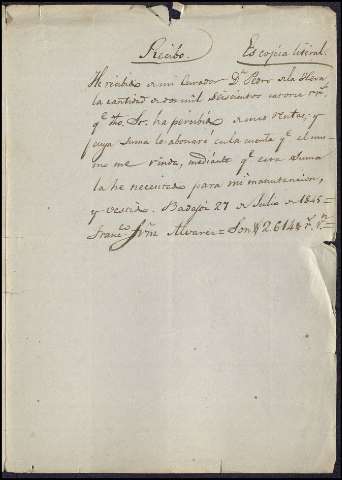 Recibo. Es copia literal.
He recibido de mi Curador Dn. Pedro de la Hera
la cantidad de dos mil seiscientos catorce rs.
qe. dho. Sr. ha percibido de mis rentas, y
cuya suma le abonaré en la cuenta qe. el mis-
mo me rinda, mediante qe. esta suma
la he necesitado para mi manutencion,
y vestido. Badajoz 27 de Julio de 1845=
Franco. Alvarez= Son 2.614 rs. vn.=